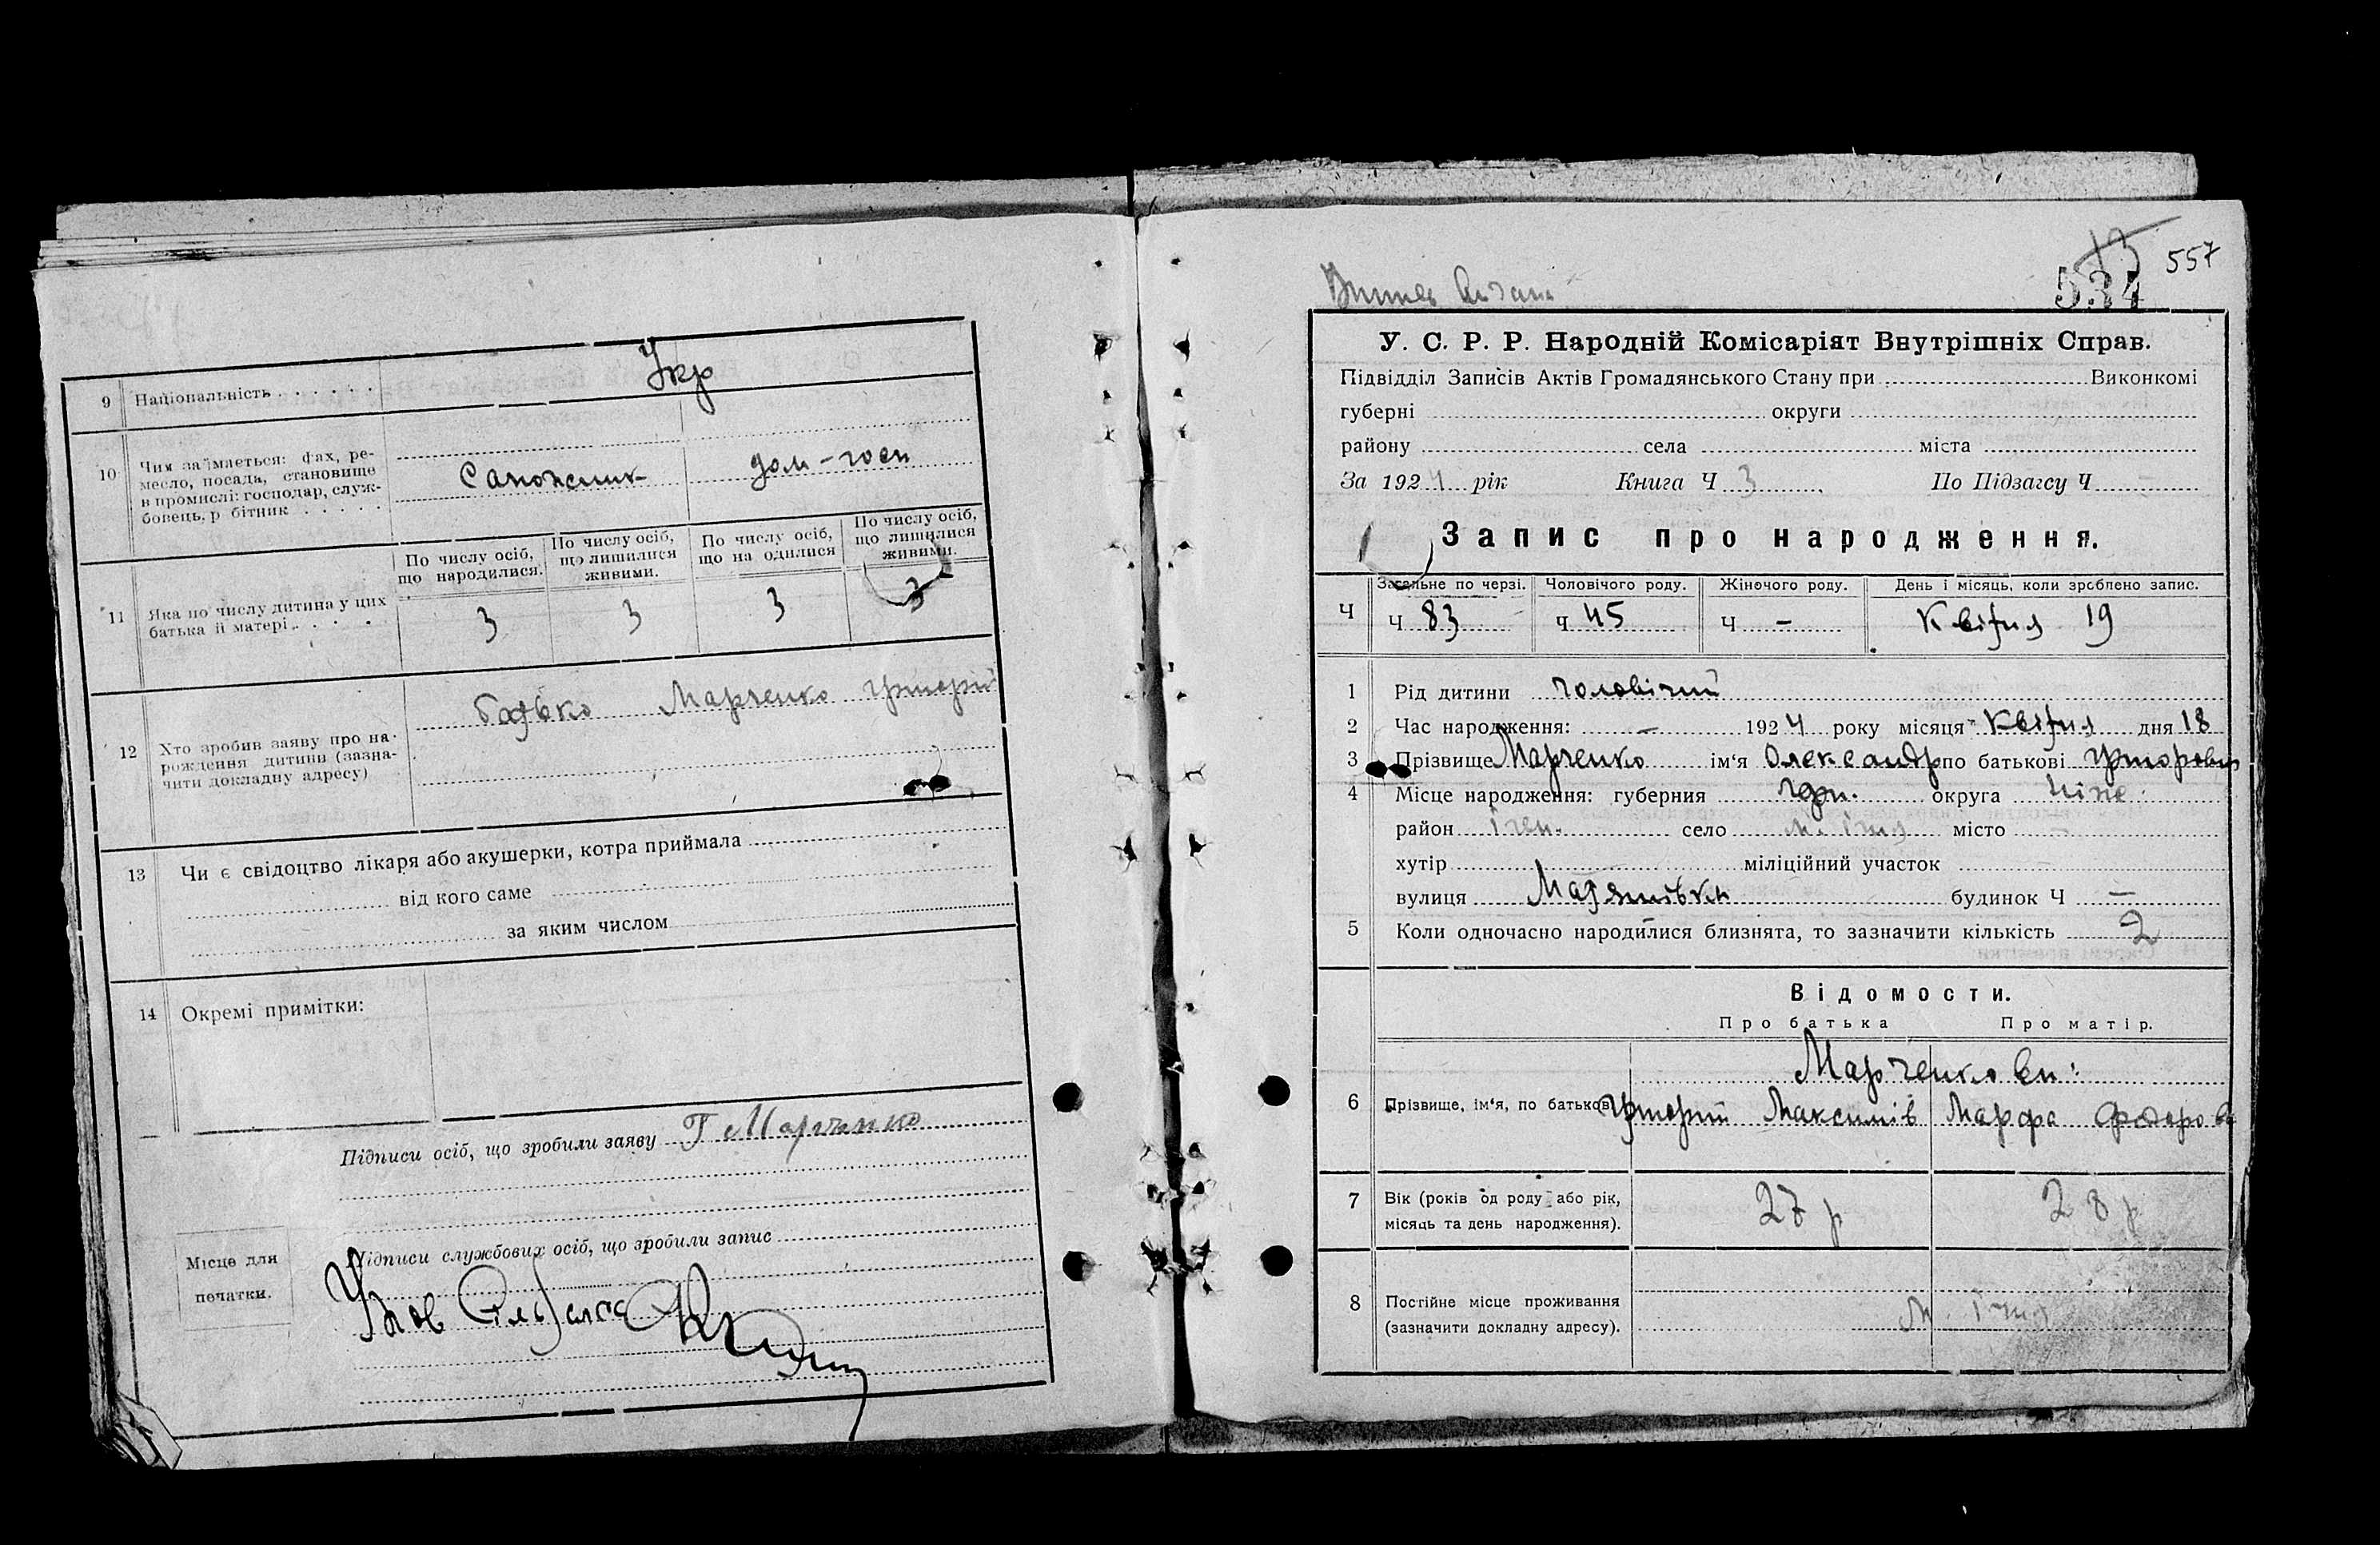 9 Національність . . . . . . Укр
10 Чим займається: фах, ре-
месло, посада, становище
в промислі: господар, служ-
бовець, р бітник . . . . .
Сапожник дом-госп
11 Яка по числу дитина у цих
батька й матері . . . .
По числу осіб,
що народилися.
По числу осіб,
що лишилися
живими.
По числу осіб,
що на одилися
По числу осіб,
що лишилися
живими.
3 3 3 3
12 Хто зробив заяву про на-
рождення дитини (зазна-
чити докладну адресу)
батько Марченко Григорій
13 Чи є свідоцтво лікаря або акушерки, котра приймала
від кого саме
за яким числом
14 Окремі примітки:
Підписи осіб, що зробили заяву Г Марченко
Підписи службових осіб, що зробили запис
Місце для
печатки.
557
534
У. С. Р. Р. Народній Комісаріят Внутрішніх Справ.
Підвідділ Записів Актів Громадянського Стану при Виконкомі
губерні округи
району села міста
За 1924 рік Книга Ч 3 По Підзагсу Ч -
Запис про народження.
Ч
Загальне по черзі. Чоловічого роду. Жіночого роду. День і місяць, коли зроблено запис.
Ч 83 Ч 45 Ч - Квітня 19
1 Рід дитини чоловічий
2 Час народження: - 1924 року місяця Квітня дня 18
3 Прізвище Марченко ім'я Олександр по батькові Григорович
4 Місце народження: губерния Чрн. округа Ніже
район Ічен. село м. Ічня місто -
хутір міліційний участок -
вулиця Матяшівка будинок Ч -
5 Коли одночасно народилися близнята, то зазначити кількість 2
Відомости.
Про батька Про матір.
6 Прізвище, ім'я, по батькові
Марченкови:
Григорій Максимів Марфа Федорова
7 Вік (років од роду або рік,
місяць та день народження).
27 р 28 р
8 Постійне місце проживання
(зазначити докладну адресу).
м. Ічня